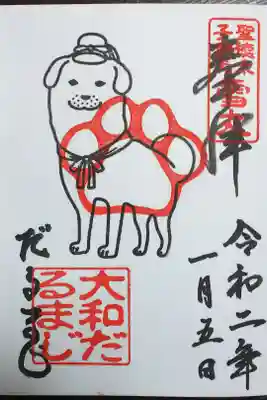 奉拝
令和二年
一月五日
だるまじ
大和だ
るまじ